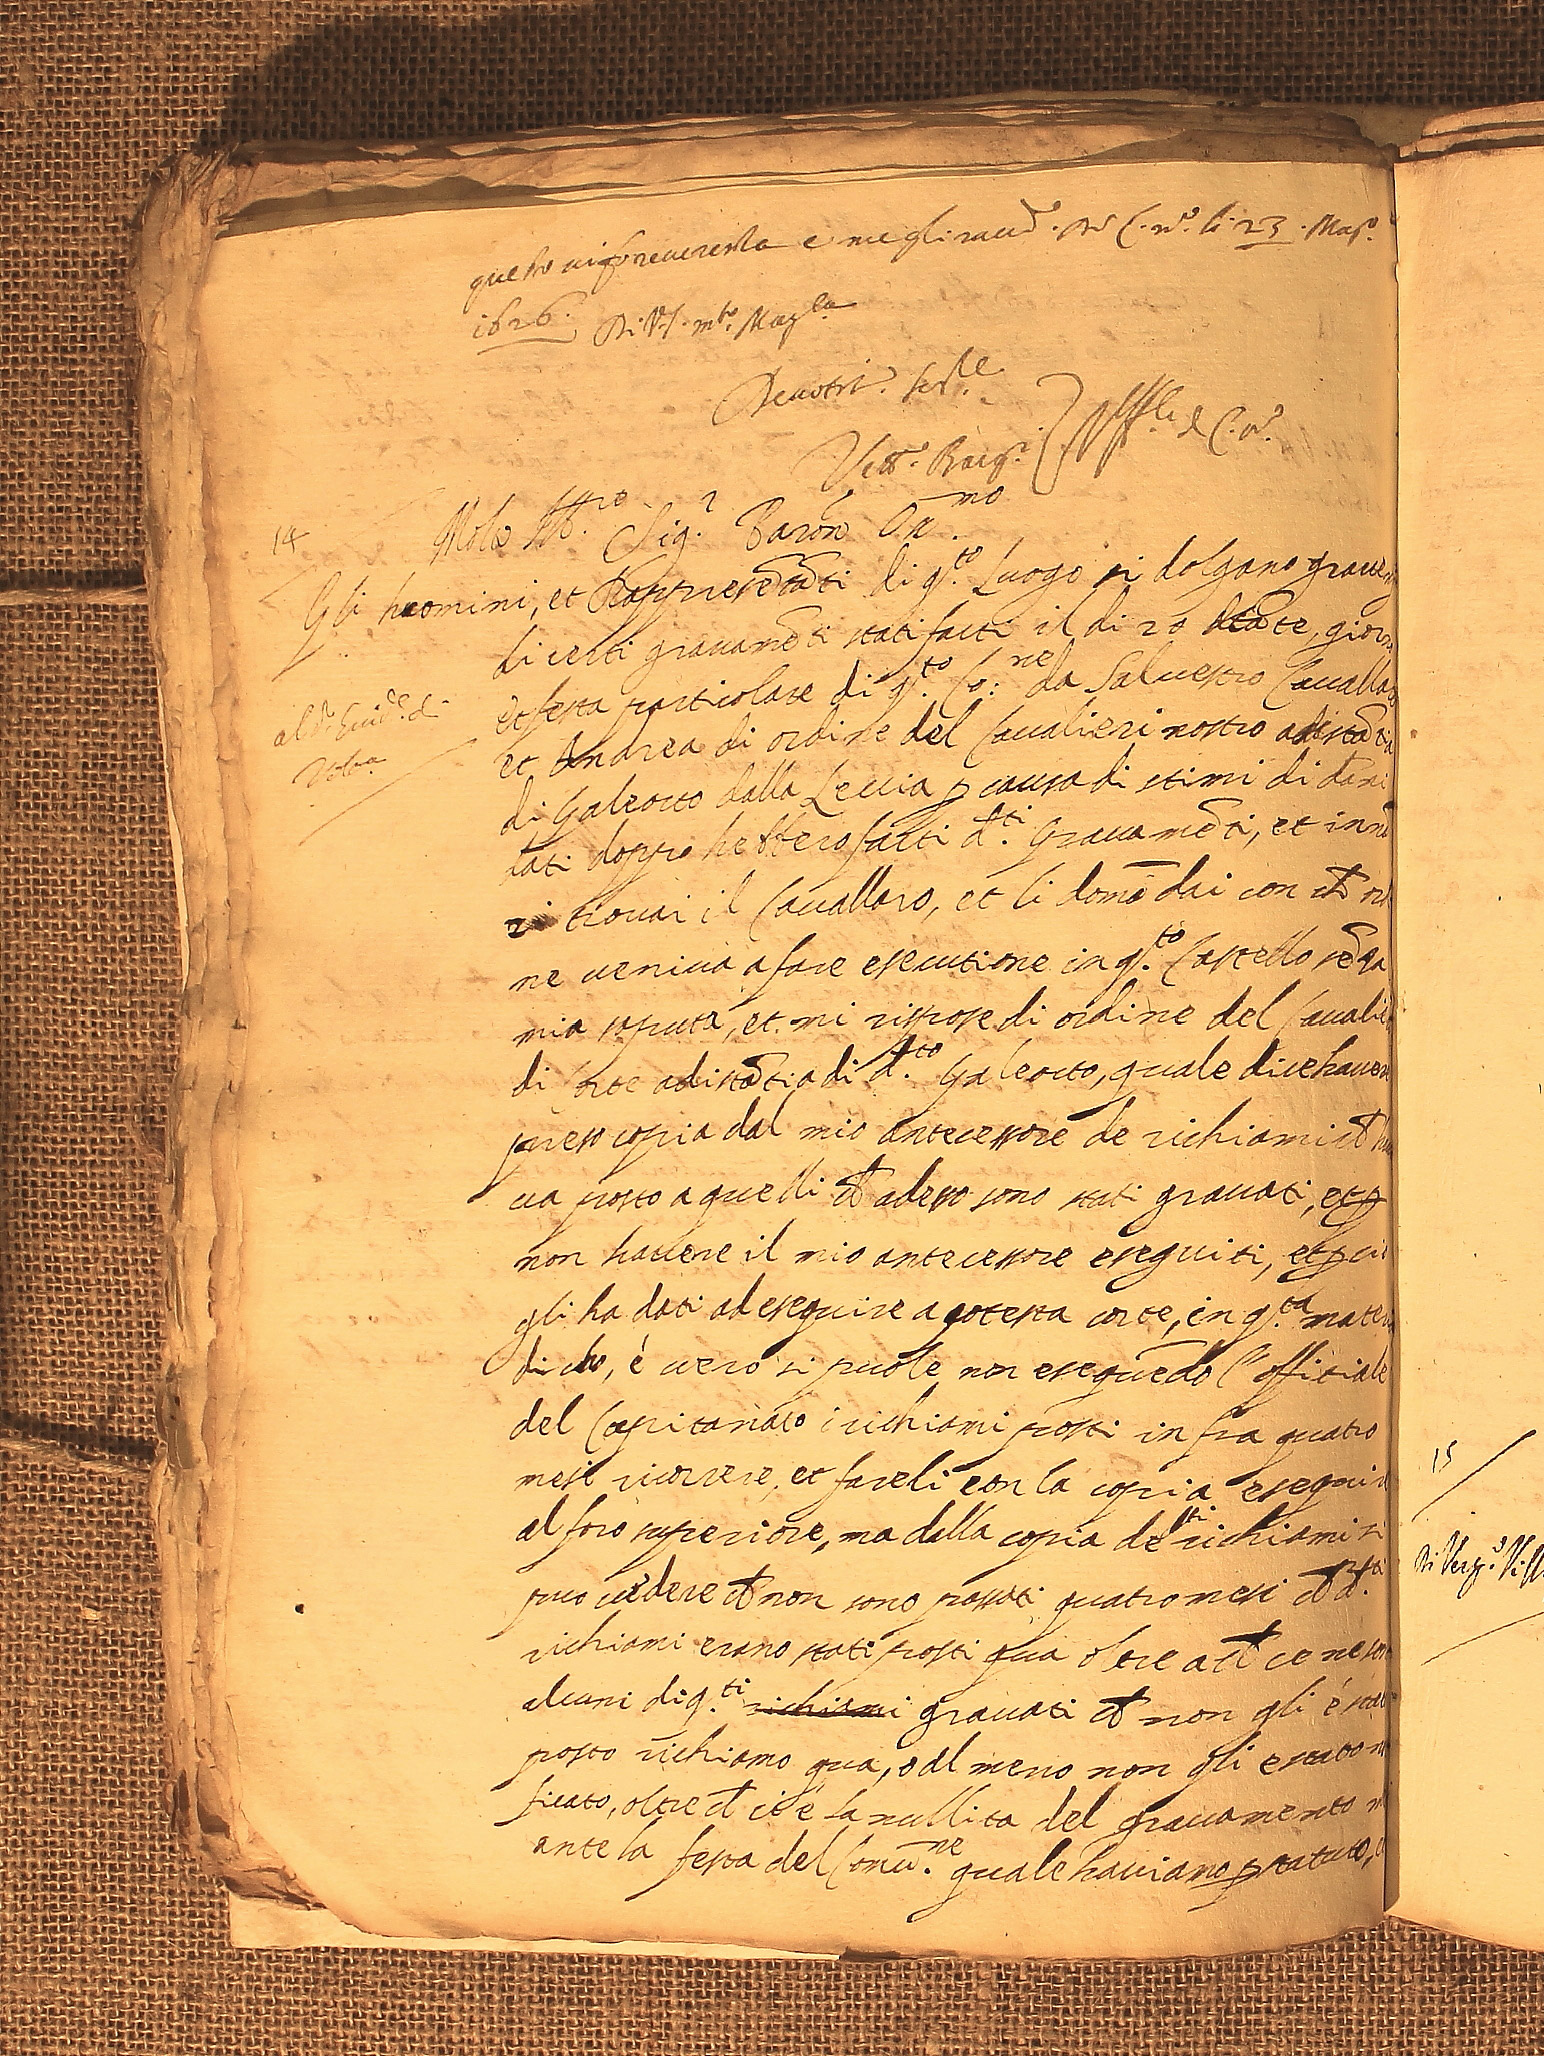 que ho a informarla e me gli racc.do Di C.n.o li 23. Mag.o
1626. Di V.S. m.to Mag.ca
Devotis.o Ser.le
Vett.o
14
Molto Ill.re Sig.r Baron Oss.mo
Gli huomini, et Rappresētāti di q.to Luogo si dolgano graue
di certi grauamēti stati fatti il di 20 stāte, giorn
et festa particolare di q.to Co:ne da Saluestro Cauallar
et Andrea di ordine del Caualieri nostro ad istātia
di Galeotto dalla Leccia p causa di stimi di dani
dati doppo hebbero fatti d.ti Grauamēti, et in
ritrouai il Cauallaro, et li domādai con ch ord
ne veniua a fare esecutione in q.to Castello sēza
mia saputa, et mi rispose di ordine del Caualie
di Corte ad istātia di d.to Galeotto, quale dice hauere
preso copia dal mio antecessore de richiami ch
ua posto a quelli ch adesso sono stati grauati, et p
non hauere il mio antecessore eseguiti, et p ciò
gli ha dati ad eseguire a cotesta corte, in q.ta mater
dico, è uero si puole non eseguēdo l'offitiale
del Capitanato i richiami posti in fra quatro
mesi ricorrere, et fareli con la copia eseguire
al foro superiore, ma dalla copia de d.ti richiami si
puo uedere ch non sono passati quatro mesi ch d.ti
richiami erano stati posti qua oltre a ch ce ne son
alcuni di q.ti richiami grauati ch non gli è stato
posto richiamo qua, o al meno non gli e stato n
ficato, oltre ch ci è la nullita del grauamento
ante la festa del Comu.ne quale hauiamo p statuto,
al
Volta
15
Di Verg.o Vill